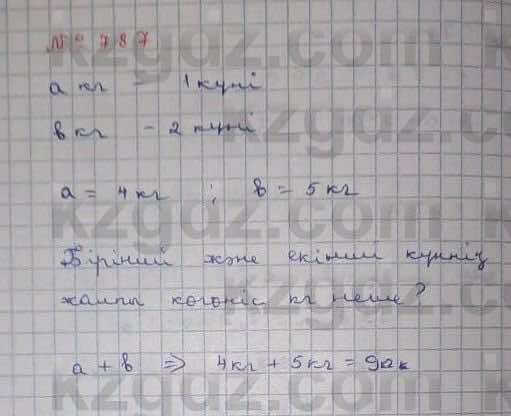 № 787
a кг - 1 күні
в кг - 2 күні
a = 4 кг ; в = 5 кг
Бірінші және екінші күннің
жалпы көгөніс кг неше?
a + в ⇒ 4кг + 5кг = 9
kzgdz.com